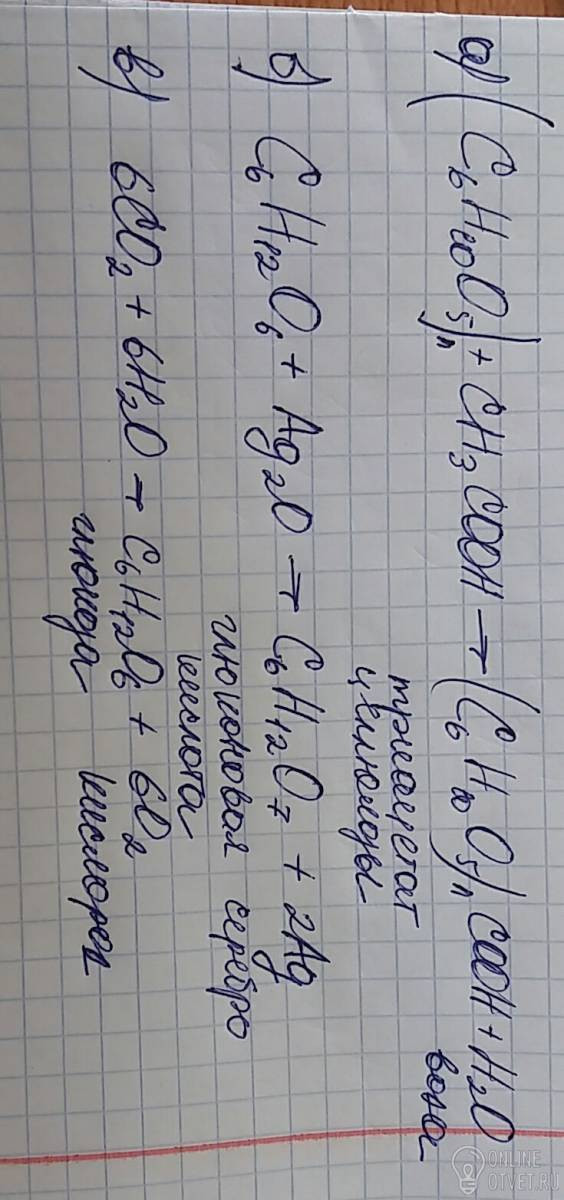 а) (C₆H₁₀O₅)ₙ + CH₃COOH → (C₆H₁₀O₅)ₙ COOH + H₂O
триацетат вода
целлюлозы
б) C₆H₁₂O₆ + Ag₂O → C₆H₁₂O₇ + 2Ag
глюконовая серебро
кислота
в) 6CO₂ + 6H₂O → C₆H₁₂O₆ + 6O₂
глюкоза кислород
ONLINE
OTVET.RU